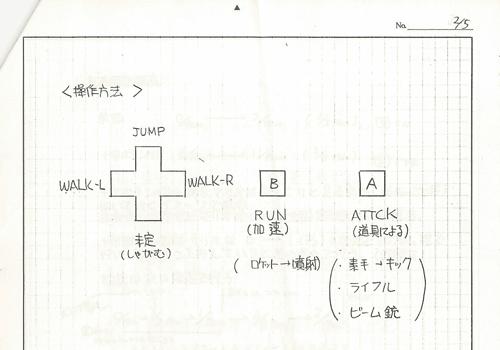 No. 2/5
<操作方法>
JUMP
WALK-L
WALK-R
B
A
未定
(しゃがむ)
RUN
(加速)
ATTCK
(道具による)
(ロケット→噴射)
(・素手→キック
・ライフル
・ビーム銃)